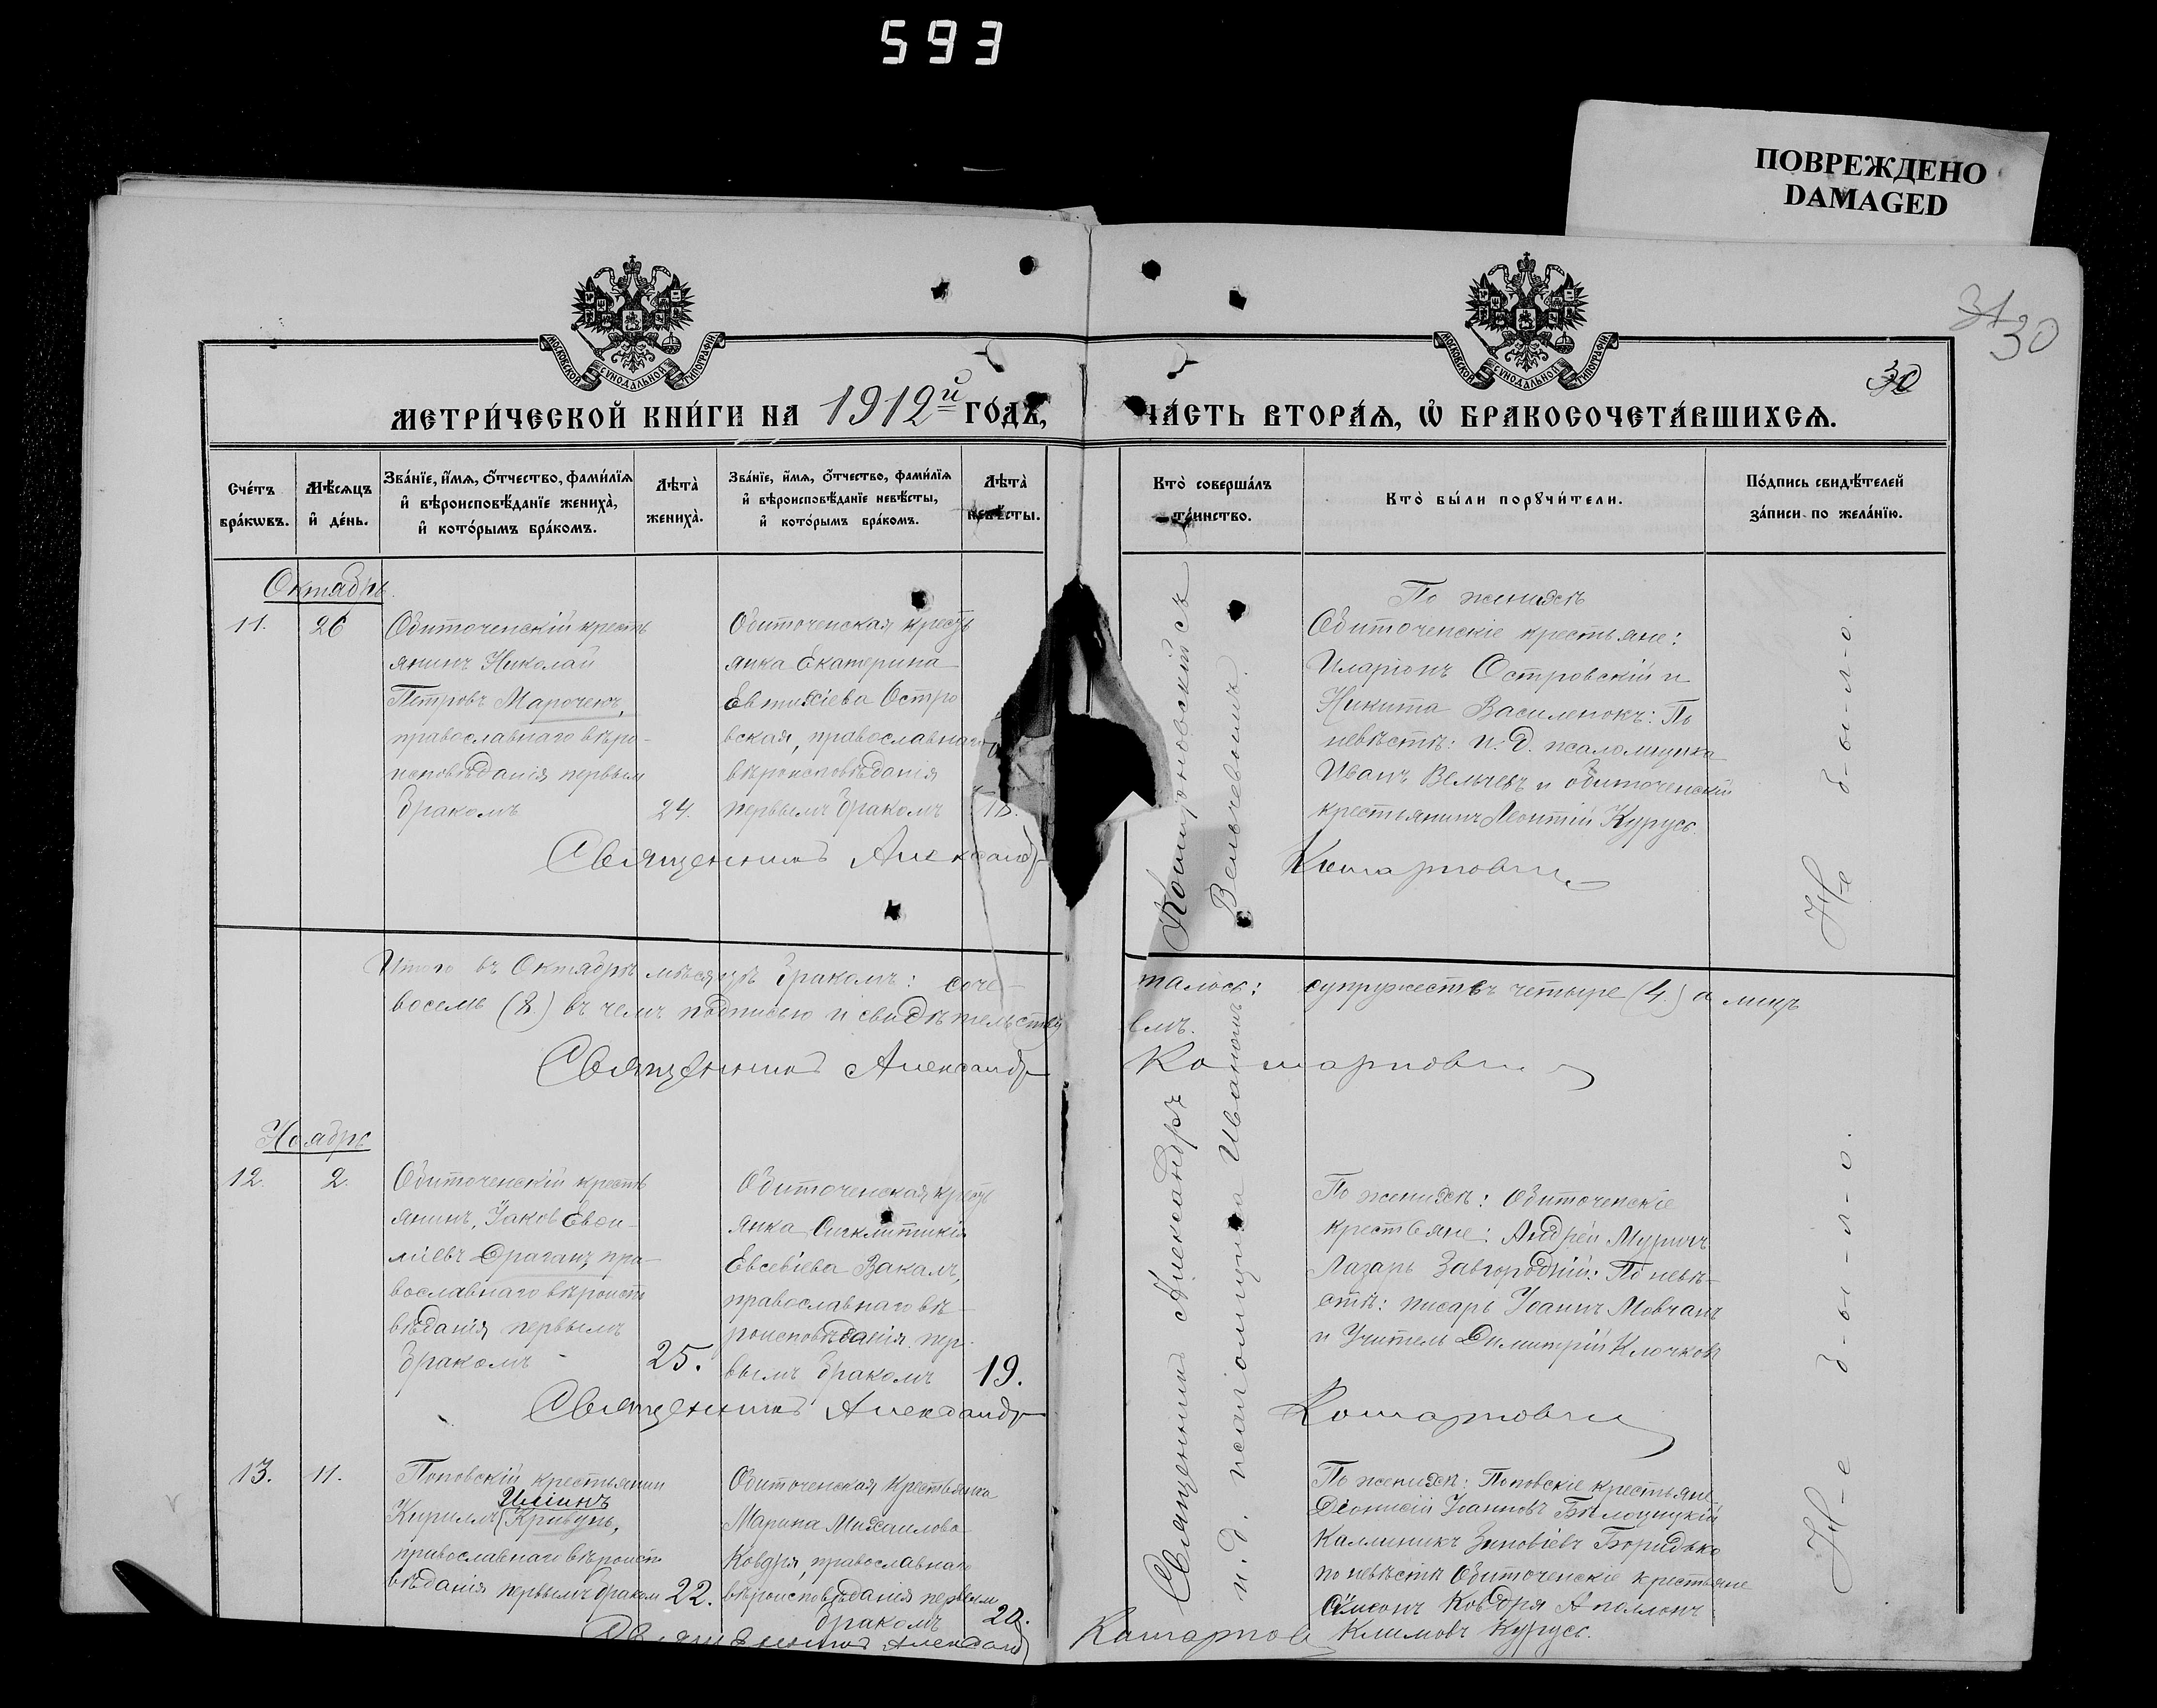 593
ПОВРЕЖДЕНО
DAMAGED
31
30
30
МОСКОВСКОЙ СУНОДАЛЬНОЙ ТИПОГРАФІИ
МОСКОВСКОЙ СУНОДАЛЬНОЙ ТИПОГРАФІИ
МЕТРИ́ЧЕСКОЙ КНИ́ГИ НА 1912й ГО́ДЪ,
ЧА́СТЬ ВТОРА́Ѧ, Ѡ БРАКОСОЧЕТА́ВШИХСѦ.
Сче́тъ бра́кѡвъ.
Мѣ́сѧцъ и де́нь.
Зва́нїе, и́мѧ, ѻ́тчество, фами́лїѧ
и вѣроисповѣ́данїе жениха̀,
и кото́рымъ бра́комъ.
Лѣта̀ жениха̀.
Зва́нїе, и́мѧ, ѻ́тчество, фами́лїѧ
и вѣроисповѣ́данїе невѣ́сты,
и кото́рымъ бра́комъ.
Лѣта̀ невѣ́сты.
Кто̀ соверша́лъ та́инство.
Кто̀ бы́ли порꙋчи́тели.
По́дпись свидѣ́телей
за́писи по жела́нїю.
Октябрь.
11.
26
Обиточенскій кресть
янинъ Николай
Петровъ Марочекъ,
православнаго вѣро-
исповѣданія первым
бракомъ
24.
Обиточенская кресть
янка Екатерина
Евтихіева Остро
вская, православнаго
вѣроисповѣданія
первымъ бракомъ
18.
По женихѣ
Обиточенскіе крестьяне:
Иларіонъ Островскій и
Никита Василенокъ: По
невѣстѣ: и. д. псаломщика
Иванъ Вельчевъ и обиточенскій
крестьянинъ Леонтій Курусь.
Священникъ Александръ
Н-е б-ы-л-о.
Итого въ Октябрѣ мѣсяцѣ бракомъ: соче-
талось: супружествъ четыре (4.) а лицъ
восемь (8.) въ чемъ подписью и свидѣтельству
емъ.
Священникъ Александръ
Ноябрь
12.
2.
Обиточенскій кресть
янинъ, Іаков
Драганъ, пра-
вославнаго вѣроиспо
вѣданія первымъ
бракомъ
25.
Обиточенская кресть
янка Синклитикія
Евсевіева Вакалъ,
православнаго вѣ-
роисповѣданія пер-
вымъ бракомъ
19.
Священникъ Александръ
и. д. псаломщика Иваномъ
Вельчевымъ.
По женихѣ: Обиточенскіе
крестьяне: Андрей
Лазарь Завгородній: По невѣ-
стѣ: писарь Іоаннъ Мовчанъ
и Учитель Димитрій Клочковъ
Священникъ Александръ
Н-е б-ы-л-о.
13.
11.
Поповскій крестьянин
Иліинъ
Кирилл Кривунь,
православнаго вѣроиспо
вѣданія первымъ браком
22.
Обиточенская крестьянка
Марина Михаилова
Ковдря, православнаго
вѣроисповѣданія первым
бракомъ
20.
По женихѣ: Поповскіе крестьяне
Діонисій Іоанновъ Бѣлоцицкій
Каллиникъ Зиновіевъ Боридько
по невѣстѣ Обиточенскіе крестьяне
Ковдря Аполлонъ
Климовъ Курусь.
Священникъ Александръ